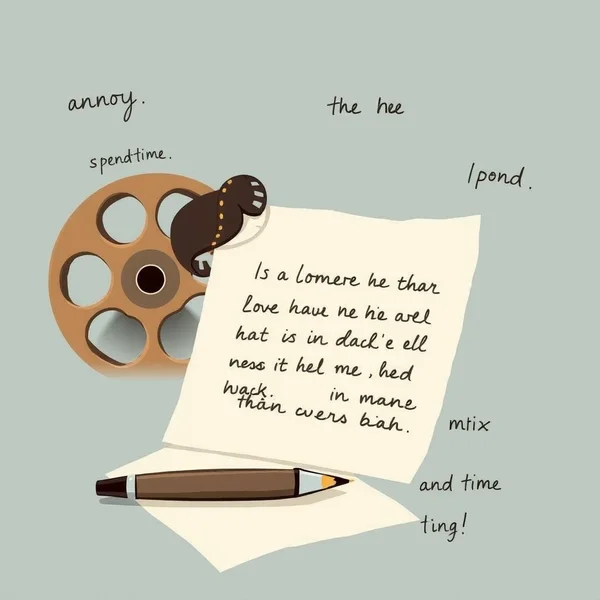 annoy.
the hee
spendtime.
lpond.
Is a lomere he thar
Love haue ne hie arel
hat is in dack'e ell
ness it hel me, hed
wack. in mane
thân cvers biah.
mtix
and time
ting!